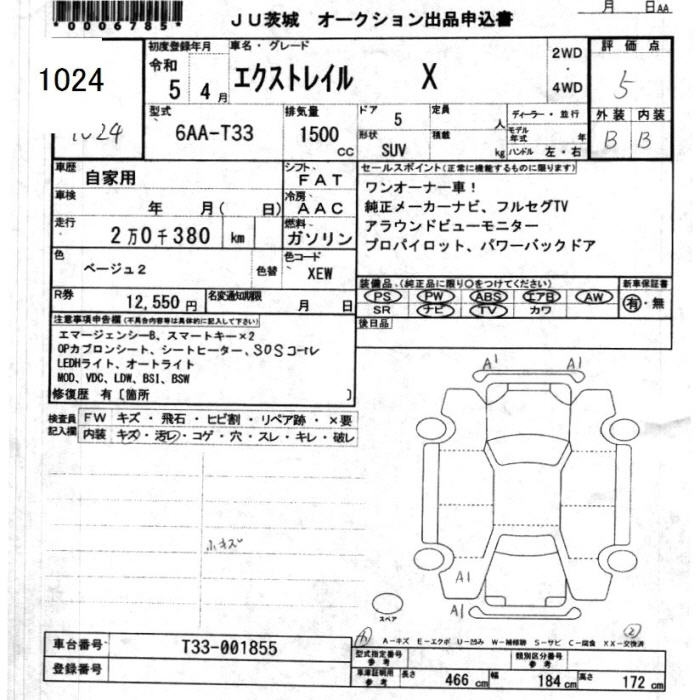 *0006785*
JU茨城 オークション出品申込書
月 日AA
1024
1024
初度登録年月
令和
5 4月
車名・グレード
エクストレイル X
2WD
・
4WD
評価点
5
外装 内装
B B
型式
6AA-T33
排気量
1500
cc
ドア
5
定員
人
形状
SUV
積載
kg
ディーラー・並行
モデル年式 年
ハンドル 左・右
車歴
自家用
シフト
FAT
車検
年 月( 日)
冷房
AAC
走行
2万0千380 km
燃料
ガソリン
色
ベージュ2
色替
色コード
XEW
R券
12,550円
名変通知期限
月 日
セールスポイント(正常に機能するものに限ります)
ワンオーナー車！
純正メーカーナビ、フルセグTV
アラウンドビューモニター
プロパイロット、パワーバックドア
装備品(純正品に限り○をつけてください)
PS PW ABS エアB AW
SR ナビ TV カワ
新車保証書
有・無
後日品
注意事項申告欄(不具合内容等は具体的に記入して下さい)
エマージェンシーB、スマートキー×2
OPカプロンシート、シートヒーター、SOSコール
LEDHライト、オートライト
MOD、VDC、LDW、BSI、BSW
修復歴 有〔箇所 〕
検査員記入欄
FW キズ・飛石・ヒビ割・リペア跡・×要
内装 キズ・汚レ・コゲ・穴・スレ・キレ・破レ
小キズ
A1 A1
A1
A1
スペア
A-キズ E-エクボ U-凹み W-補修跡 S-サビ C-腐食 XX-交換済
車台番号
T33-001855
登録番号
型式指定番号
参考
類別区分番号
参考
車庫証明用
参考
長さ 466cm 幅 184cm 高さ 172cm